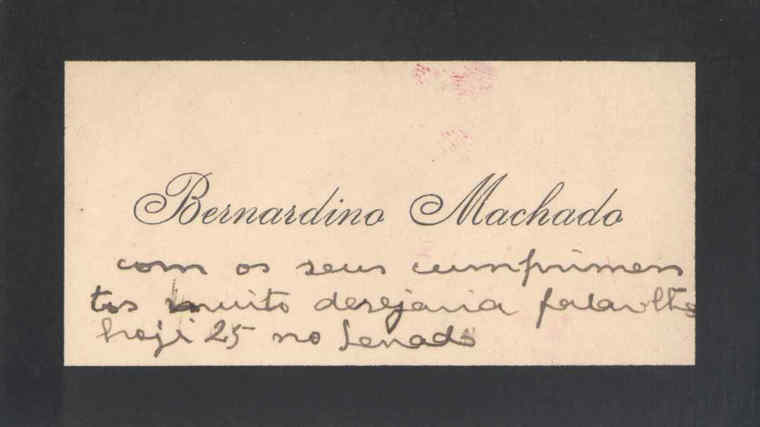 Bernardino Machado
com os seus cumprimen
tos muito desejaria falar lhe
hoje 25 no Senado